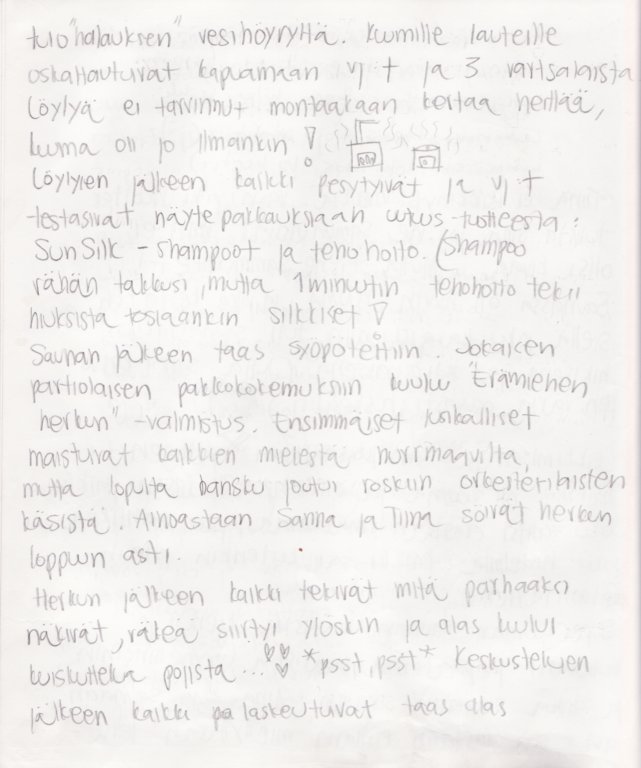 tulo "halauksen" vesihöyryltä. Kuumille lauteille
uskaltautuivat kapuamaan vj:t ja 3 vartsalaista
Löylyä ei tarvinnut montaakaan kertaa heittää,
kuuma oli jo ilmankin!
Löylyjen jälkeen kaikki pesytyivät ja vj:t
testasivat näytepakkauksiaan uutus-tuotteesta:
SunSilk -shampoot ja tehohoito. (Shampoo
vähän takkusi, mutta 1 minuutin tehohoito teki
hiuksista tosiaankin silkkiset!
Saunan jälkeen taas syöpöteltiin. Jokaisen
partiolaisen pakkokokemuksiin kuuluu "Erämiehen
herkun" -valmistus. Ensimmäiset lusikalliset
maistuivat kaikkien mielestä hurrmaavilta,
mutta lopulta banski joutui roskiin orkesterilaisten
käsistä. Ainoastaan Sanna ja Tiina söivät herkun
loppuun asti.
Herkun jälkeen kaikki tekivät mitä parhaaksi
näkivät, väkeä siirtyi ylöskin ja alas kuului
kuiskuttelua pojista...♥♥♥ *psst, psst* Keskustelujen
jälkeen kaikki laskeutuivat taas alas